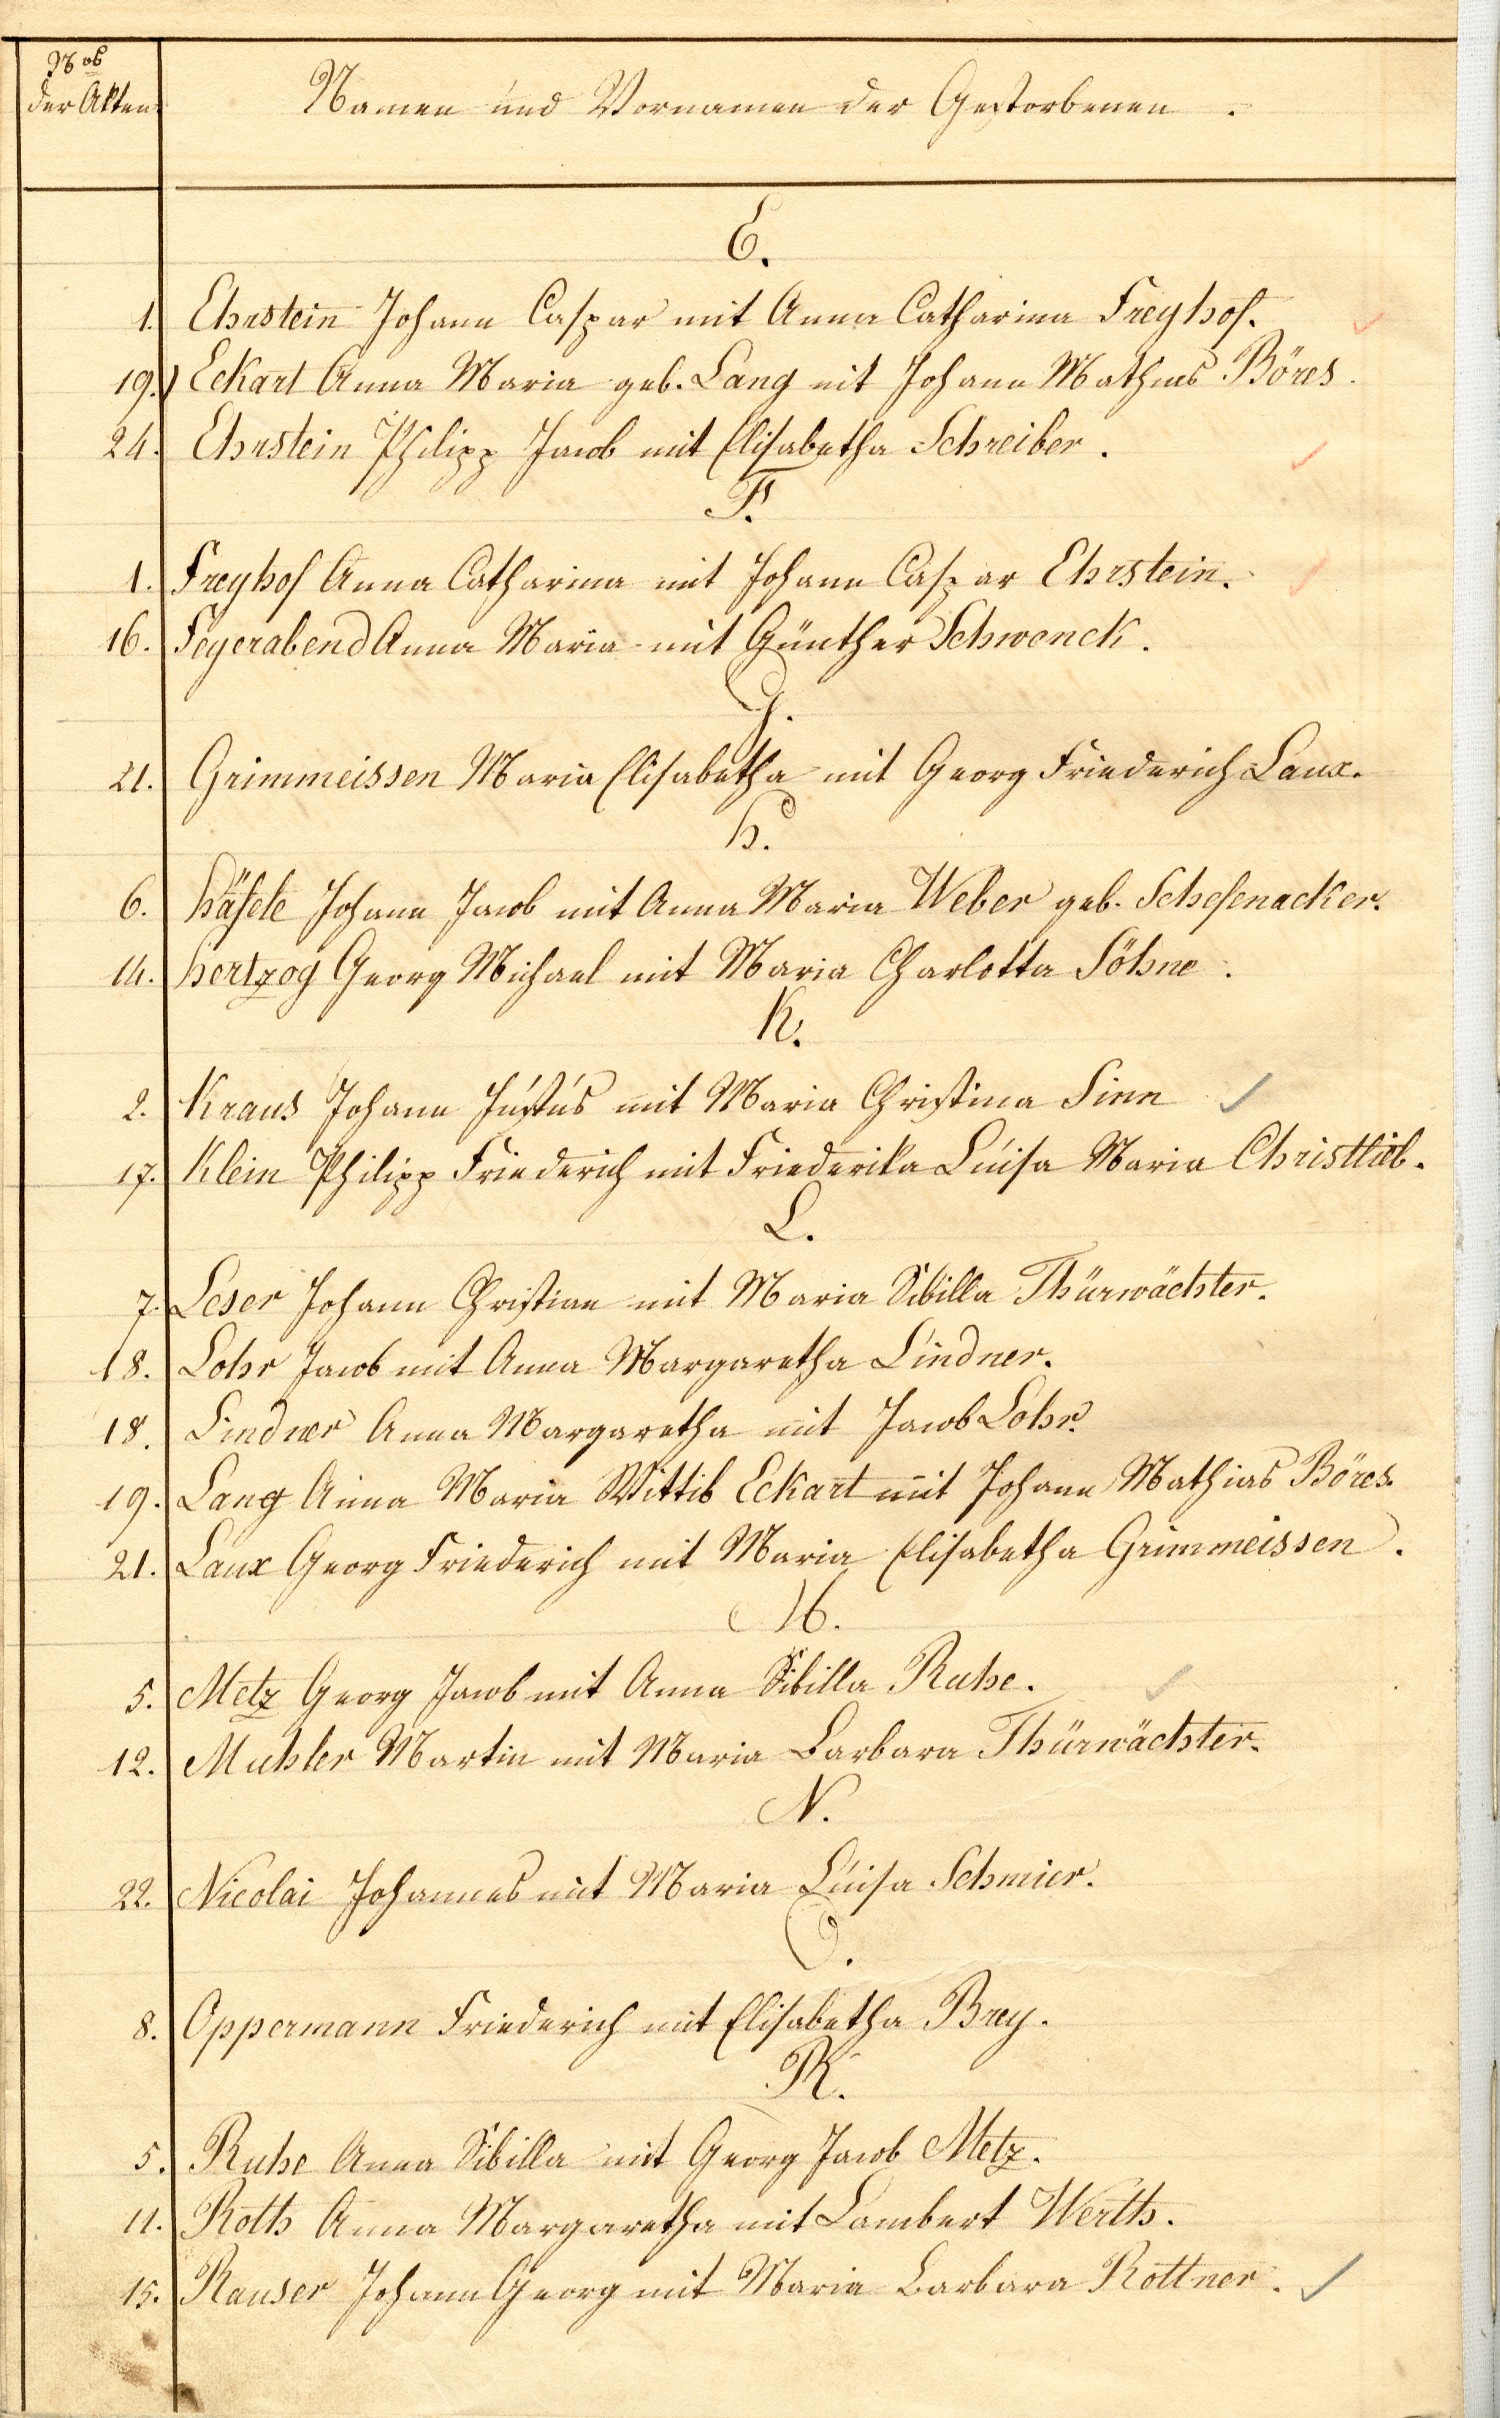 Nº
der Akten
Namen und Vornamen der Gestorbenen.
E.
1. Ehrstein Johann Caspar mit Anna Catharina Freyhof.
19. Eckart Anna Maria geb. Lang mit Johann Mathias Böres.
24. Ehrstein Philipp Jacob mit Elisabetha Schreiber.
F.
1. Freyhof Anna Catharina mit Johann Caspar Ehrstein.
16. Feyerabend Anna Maria mit Günther Schwenck.
G.
21. Grimmeissen Maria Elisabetha mit Georg Friederich Laux.
H.
6. Häfele Johann Jacob mit Anna Maria Weber geb. Schefenacker.
14. Hertzog Georg Michael mit Maria Charlotta Söhne.
K.
2. Kraus Johann Justus mit Maria Christina Sinn
17. Klein Philipp Friederich mit Friederika Luisa Maria Christlieb.
L.
7. Leser Johann Christian mit Maria Sibilla Thürwächter.
18. Lohr Jacob mit Anna Margaretha Lindner.
18. Lindner Anna Margaretha mit Jacob Lohr.
19. Lang Anna Maria Wittib Eckart mit Johann Mathias Böres.
21. Laux Georg Friederich mit Maria Elisabetha Grimmeissen.
M.
5. Metz Georg Jacob mit Anna Sibilla Ruhe.
12. Muhler Martin mit Maria Barbara Thürwächter.
N.
22. Nicolai Johannes mit Maria Luisa Schmier.
O.
8. Oppermann Friederich mit Elisabetha Brey.
R.
5. Ruhe Anna Sibilla mit Georg Jacob Metz.
11. Roth Anna Margaretha mit Lambert Werth.
15. Rauser Johann Georg mit Maria Barbara Rottner.